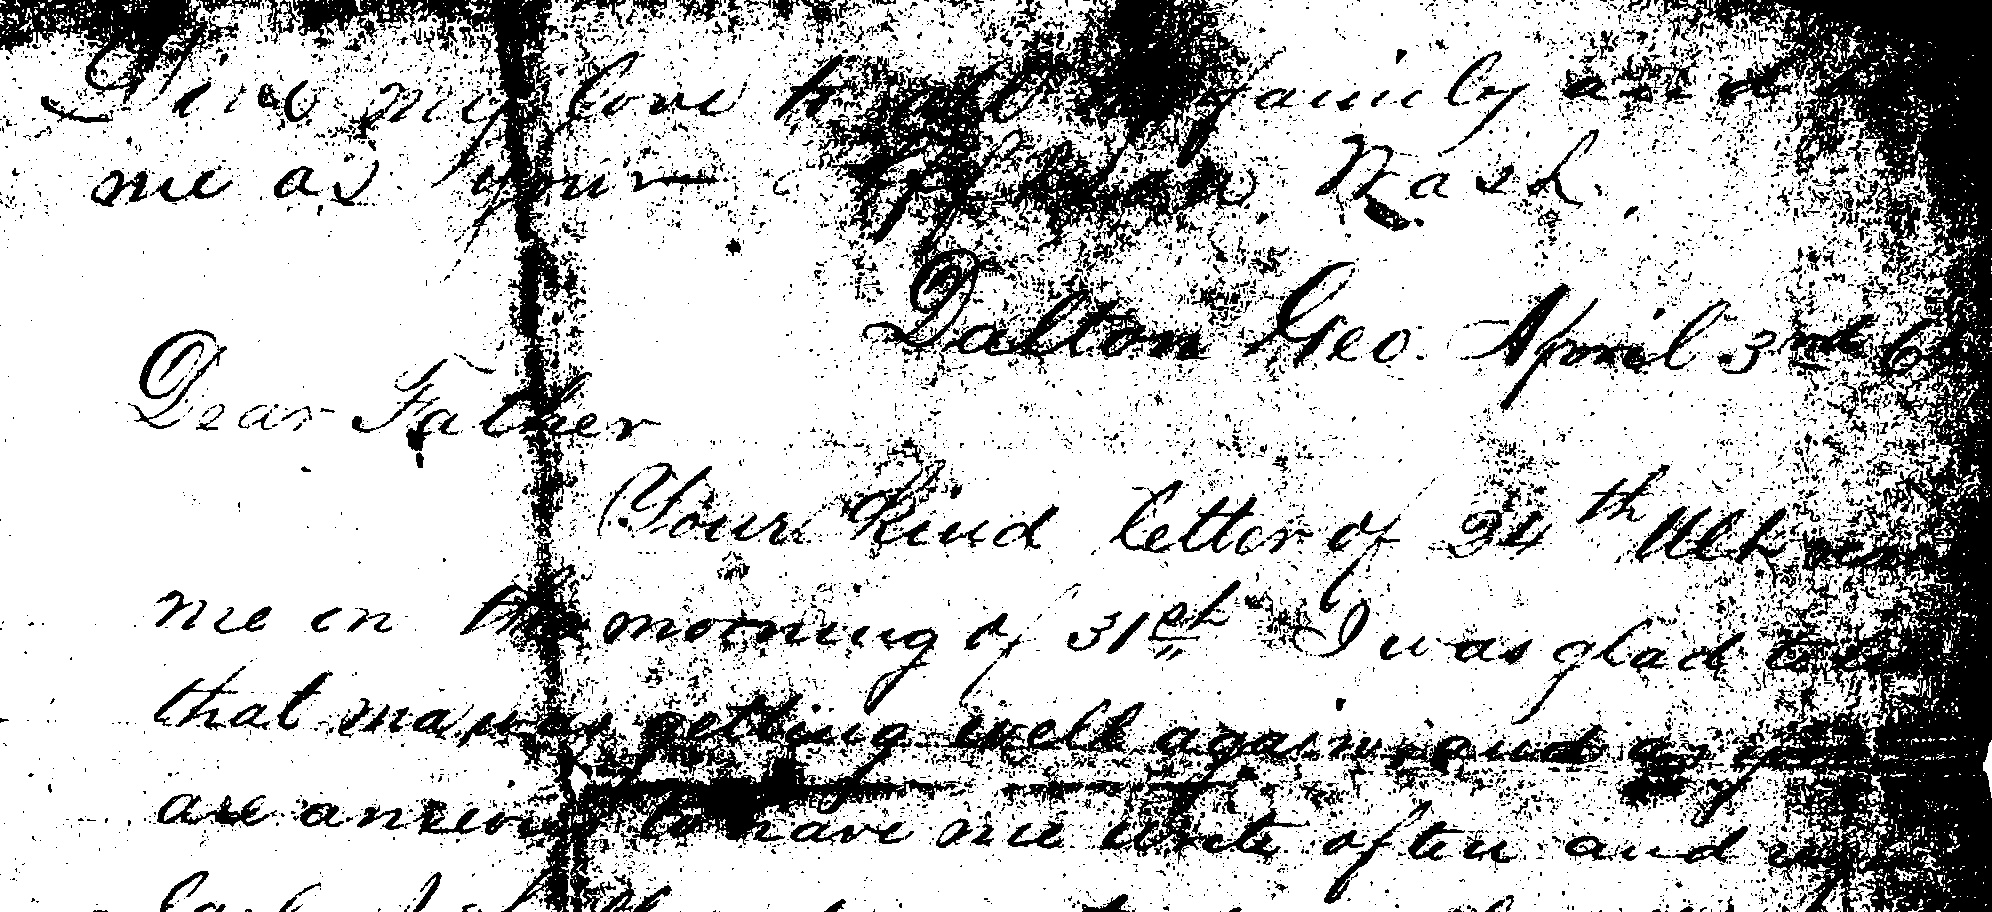 Give my love to all the family and
me as your Aff Son Wash.
Dalton Geo. April 3rd 64
Dear Father
Your kind letter of 24th Ult
me in the morning of 31st I was glad to
that ma was getting well again, and as you
are anxious to have me write often and